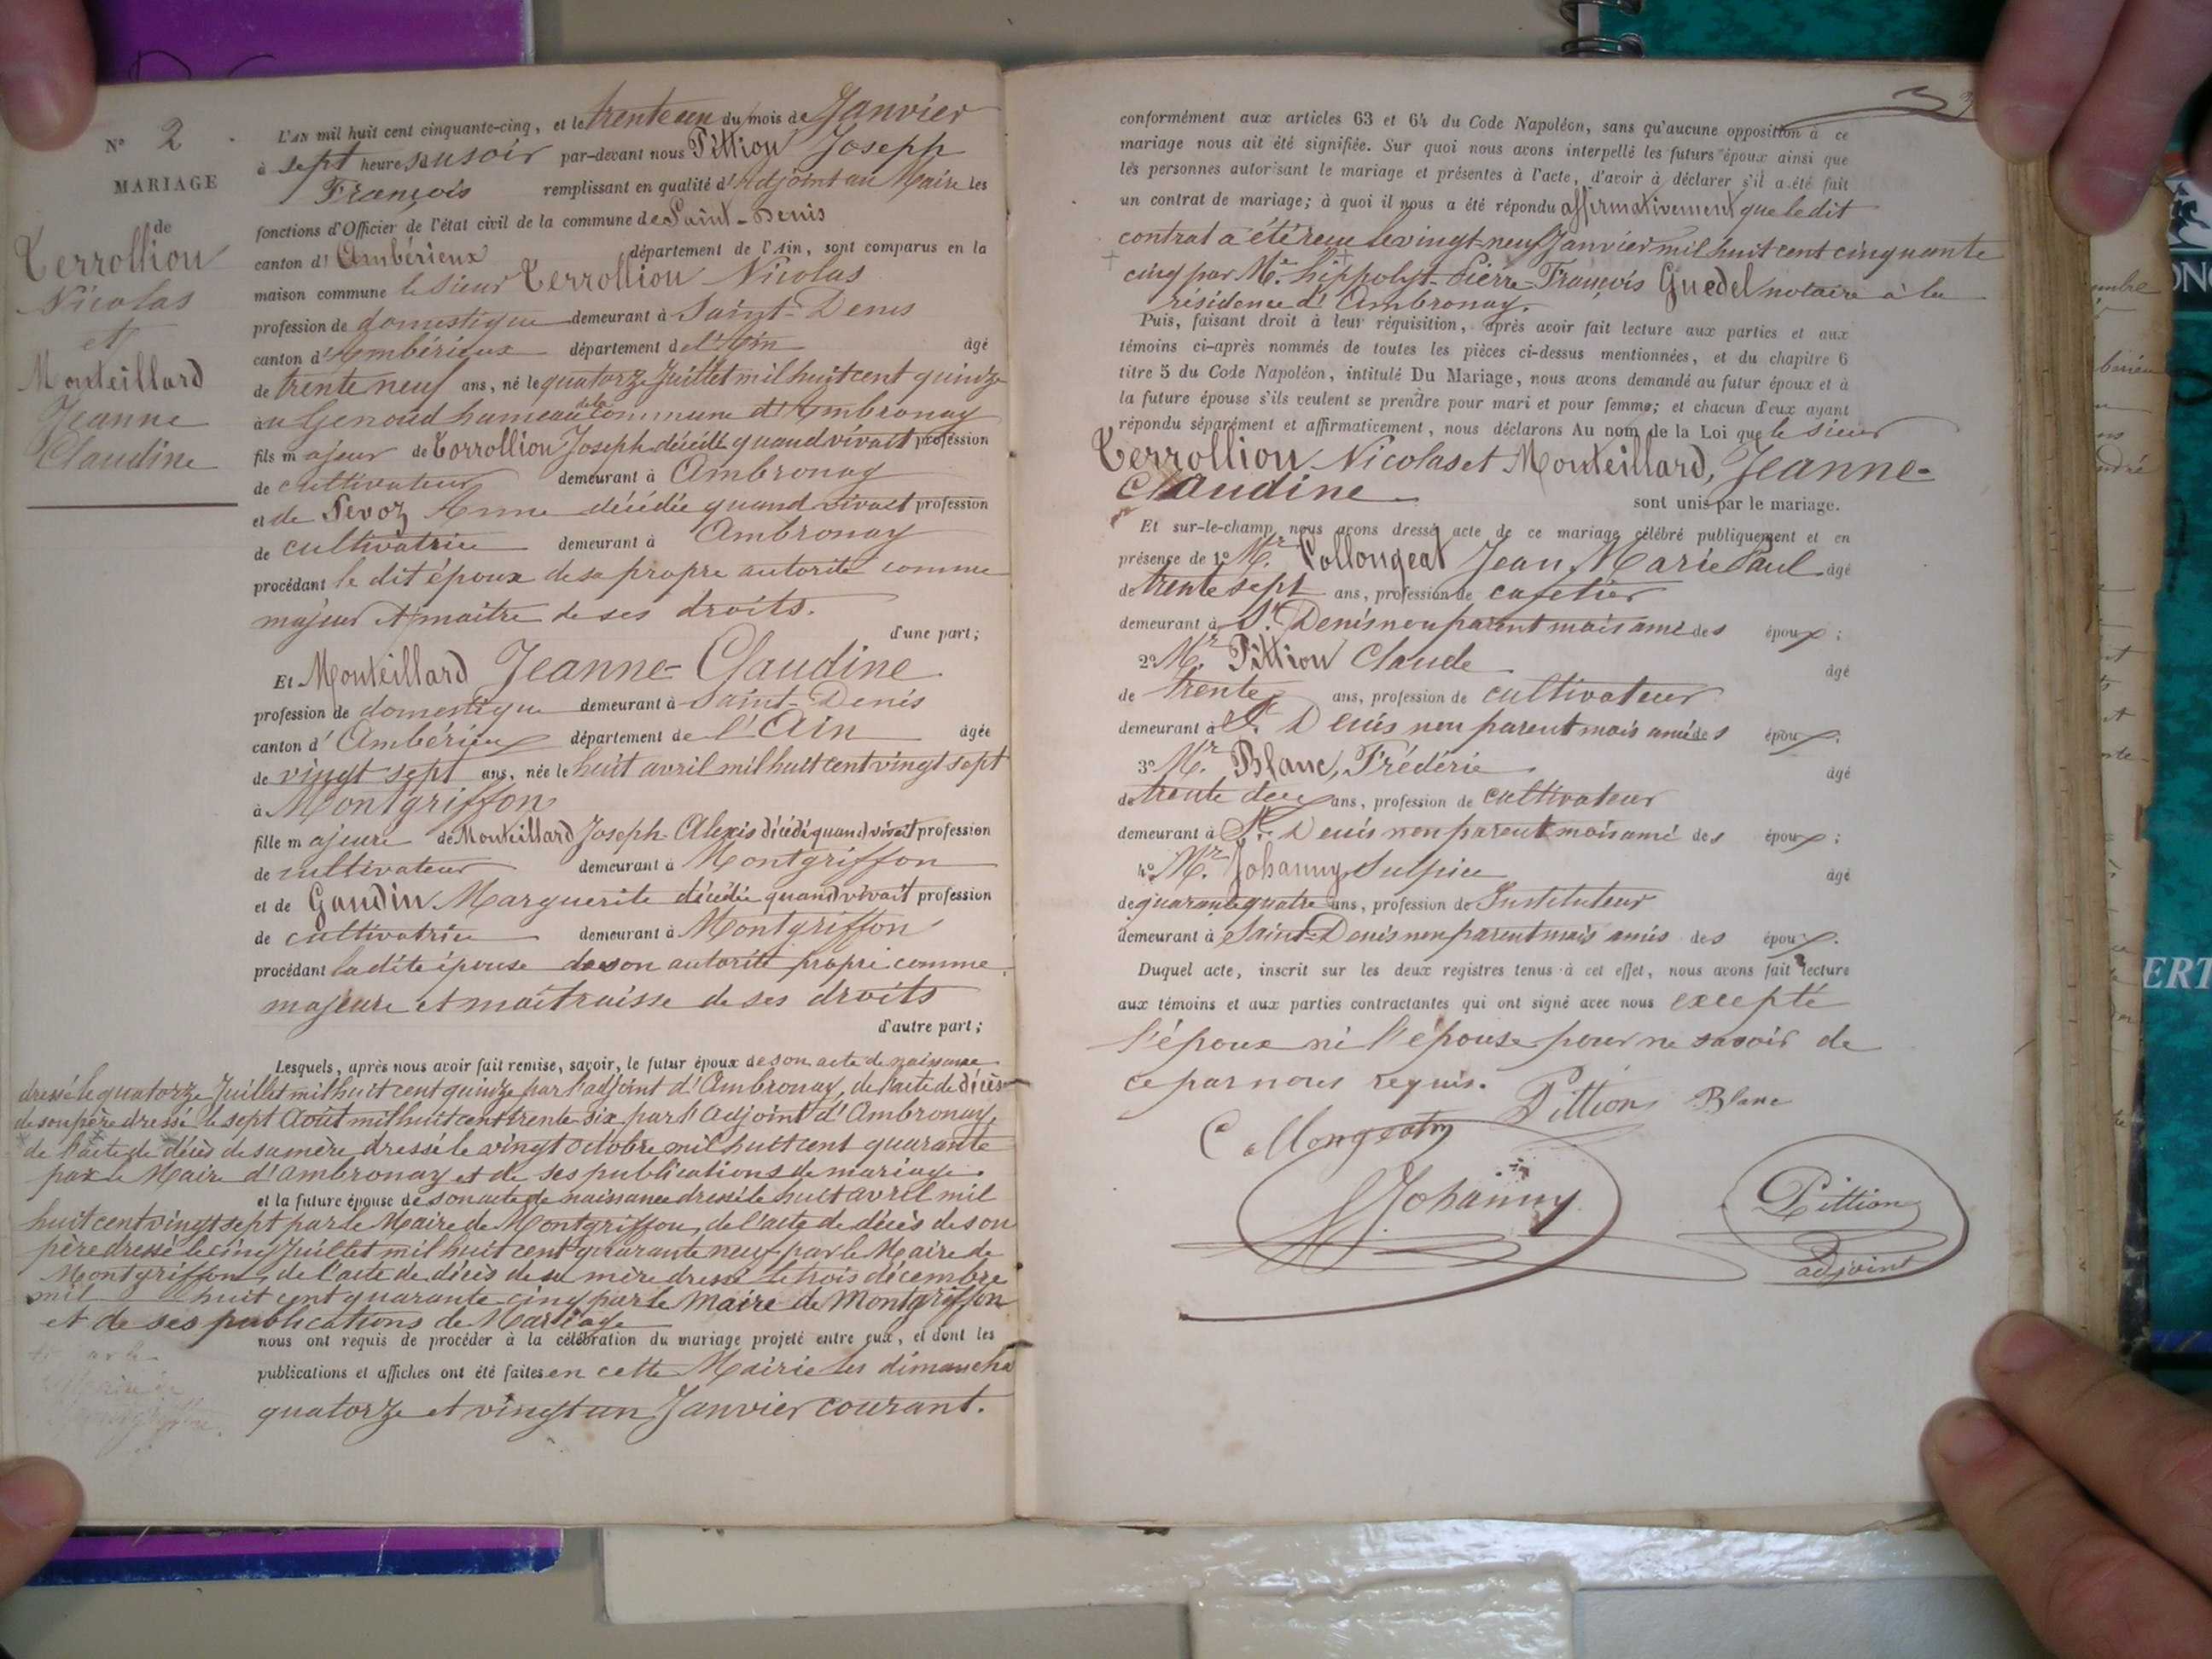 N° 2
MARIAGE
de
Terrollion
Nicolas
et
Monteillard
Jeanne
Claudine
L'AN mil huit cent cinquante-cinq, et le trente un du mois de Janvier
à sept heures du soir par-devant nous Pittion Joseph
François remplissant en qualité d'Adjoint au Maire les
fonctions d'Officier de l'état civil de la commune de Saint-Denis
canton d'Ambérieux département de l'Ain, sont comparus en la
maison commune le sieur Terrollion Nicolas
profession de domestique demeurant à Saint-Denis
canton d'Ambérieux département de l'Ain âgé
de trente neuf ans, né le quatorze Juillet mil huit cent quinze
au Genoud hameau de la commune d'Ambronay
fils majeur de Terrollion Joseph décédé quand vivait profession
de cultivateur demeurant à Ambronay
et de Sevoz Anne décédée quand vivait profession
de cultivatrice demeurant à Ambronay
procédant le dit époux de sa propre autorité comme
majeur et maitre de ses droits.
d'une part;
Et Monteillard Jeanne-Claudine
profession de domestique demeurant à Saint-Denis
canton d'Ambérieux département de l'Ain âgée
de vingt sept ans, née le huit avril mil huit cent vingt sept
à Montgriffon
fille majeure de Monteillard Joseph-Alexis décédé quand vivait profession
de cultivateur demeurant à Montgriffon
et de Gaudin Marguerite décédée quand vivait profession
de cultivatrice demeurant à Montgriffon
procédant la dite épouse de son autorité propre comme
majeure et maitraisse de ses droits
d'autre part;
Lesquels, après nous avoir fait remise, savoir, le futur époux de son acte de naissance
dressé le quatorze Juillet mil huit cent quinze par l'adjoint d'Ambronay, de l'acte de décès
de son père dressé le sept Août mil huit cent trente-six par l'adjoint d'Ambronay,
de l'acte de décès de sa mère dressé le vingt octobre mil huit cent quarante
par le Maire d'Ambronay et de ses publications de mariage.
et la future épouse de son acte de naissance dressé le huit avril mil
huit cent vingt sept par le Maire de Montgriffon, de l'acte de décès de son
père dressé le cinq Juillet mil huit cent quarante neuf par le Maire de
Montgriffon, de l'acte de décès de sa mère dressé le trois décembre
mil huit cent quarante-cinq par le Maire de Montgriffon
et de ses publications de Mariage
nous ont requis de procéder à la célébration du mariage projeté entre eux, et dont les
publications et affiches ont été faites en cette Mairie les dimanche
quatorze et vingt un Janvier courant.
conformément aux articles 63 et 64 du Code Napoléon, sans qu'aucune opposition à ce
mariage nous ait été signifiée. Sur quoi nous avons interpellé les futurs époux ainsi que
les personnes autorisant le mariage et présentes à l'acte, d'avoir à déclarer s'il a été fait
un contrat de mariage; à quoi il nous a été répondu affirmativement que le dit
contrat a été reçu le vingt-neuf Janvier mil huit cent cinquante
cinq par Me. hippolyt-Pierre-François Guedel notaire à la
résidence d'Ambronay.
Puis, faisant droit à leur réquisition, après avoir fait lecture aux parties et aux
témoins ci-après nommés de toutes les pièces ci-dessus mentionnées, et du chapitre 6
titre 5 du Code Napoléon, intitulé Du Mariage, nous avons demandé au futur époux et à
la future épouse s'ils veulent se prendre pour mari et pour femme; et chacun d'eux ayant
répondu séparément et affirmativement, nous déclarons Au nom de la Loi que le sieur
Terrollion Nicolas et Monteillard, Jeanne-
Claudine
sont unis par le mariage.
Et sur-le-champ, nous avons dressé acte de ce mariage célébré publiquement et en
présence de 1° Mr. Collongeat Jean Marie Paul âgé
de trente sept ans, profession de cafetier
demeurant à St. Denis non parent mais ami des époux;
2° Mr. Pittion Claude âgé
de trente ans, profession de cultivateur
demeurant à St. Denis non parent mais ami des époux;
3° Mr. Blanc, Frédéric âgé
de trente deux ans, profession de cultivateur
demeurant à St. Denis non parent mais ami des époux;
4° Mr. Johanny Sulpice âgé
de quarante quatre ans, profession de Instituteur
demeurant à Saint-Denis non parent mais amis des époux.
Duquel acte, inscrit sur les deux registres tenus à cet effet, nous avons fait lecture
aux témoins et aux parties contractantes qui ont signé avec nous excepté
l'époux ni l'épouse pour ne savoir de
ce par nous requis.
Pittion Blanc
Collongeat
Johanny
Pittion
adjoint
ERT